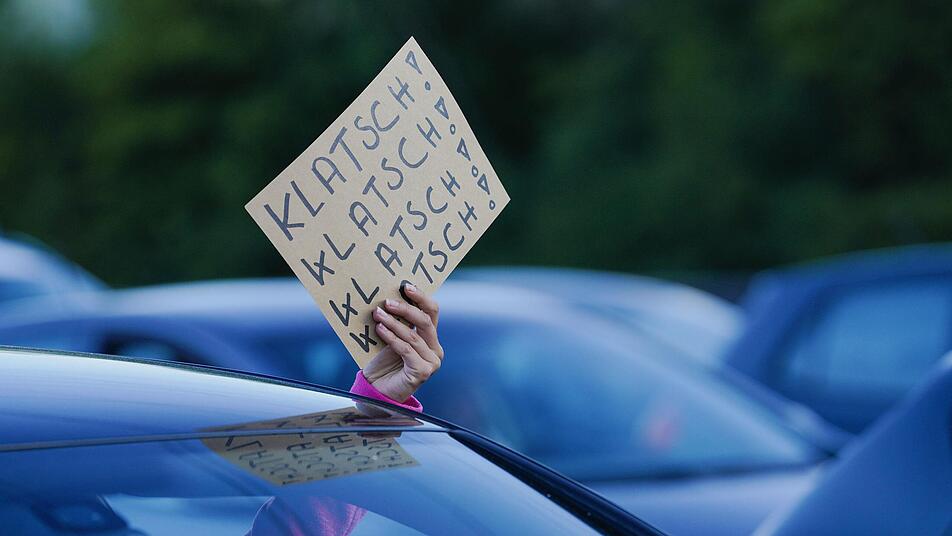 KLATSCH!
KLATSCH!
KLATSCH!
K TSCH!